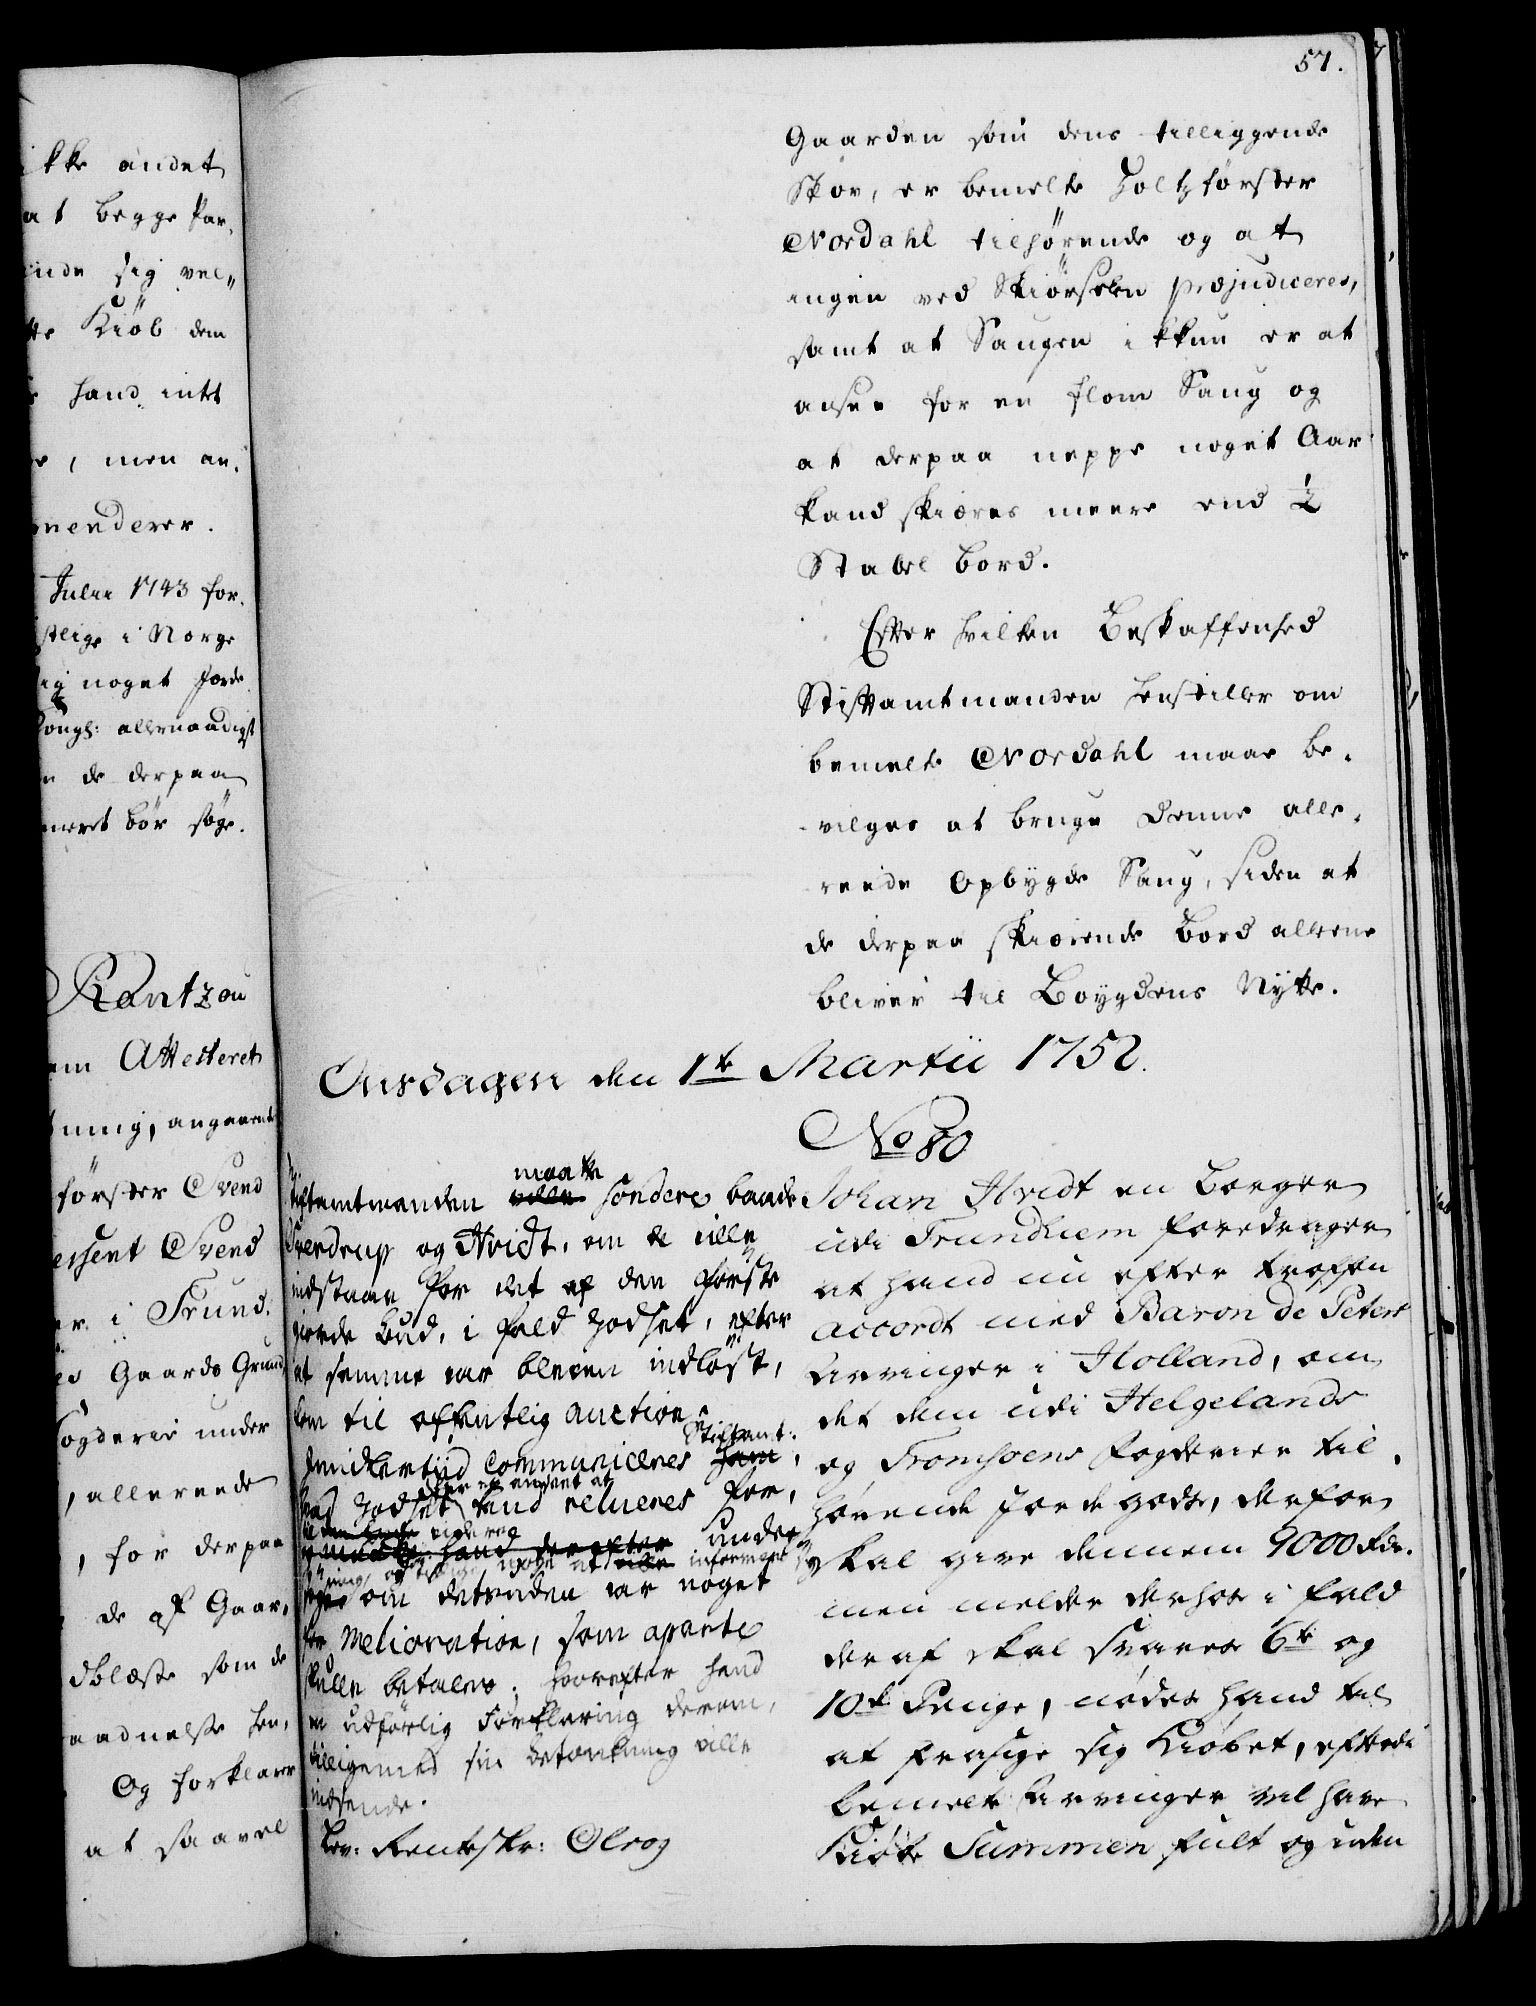 57.
ikke andet
at begge Par¬
inde sig vel¬
tte Kiöb dem
hand intet
, men an¬
menderer.
Julii 1743 for¬
stlige i Norge
sig noget Jorde
Kongl: allernaadigst
de derpaa
meret bör söge.
Rantzou
em Attesteret
ning, angaaende
förster Svend
Svend
er i Trund¬
Gaards Grund
Fogderie under
, allereede
, for derpaa
de af Gaar¬
dblæste som de
aadnelse hen¬
Og forklarer
at saavel
Gaarden som dens tilliggende
Skov, er bemelte Holtzförster
Nordahl tilhörende og at
ingen ved Skiörselen præjudiceres,
samt at Saugen ikkun er at
ansee for en flom Saug og
at derpaa neppe noget Aar
kand skiæres meere end ½
Stabel Bord.
Efter hvilken Beskaffenhed
Stiftamtmanden henstiller om
bemelte Nordahl maae be¬
vilges at bruge denne alle¬
reede Opbygde Saug, siden at
de derpaa skiærende Bord alleene
bliver til Boygdens Nytte.
Onsdagen den 1te Martii 1752.
No 80
Stiftamtmanden maatte sondere baade
Sverdrup og Hvidt, om de ville
indstaae for det af den förste
giorde Bud, i fald Godset, efter
at samme var bleven indlöst,
kom til offentlig Auction.
Imidlertiid communiceres Stiftamt:
hvad Godset kand relueres for,
under
om desuden var noget
for Melioration, som aparte
skulle betales. hvorefter hand
en udförlig Forklaring derom,
tilligemed sin betænkning ville
indsende.
Lev: Rentskr: Olrog
Johan Hvidt en Borger
udi Trundhiem foredrager
at hand nu efter troffen
accordt med Baron de Peters
Arvinger i Holland, om
det dem udi Helgelands
og Tromsoens Fogderier til¬
hörende Jorde gods, derfor
skal give dennem 9000 Rdr.
men melder derhos i fald
deraf skal svares 6te og
10de Penge, nödes hand til
at frasige sig Kiöbet, efterdi
bemelte Arvinger vil have
Kiöbe Summen fult og uden